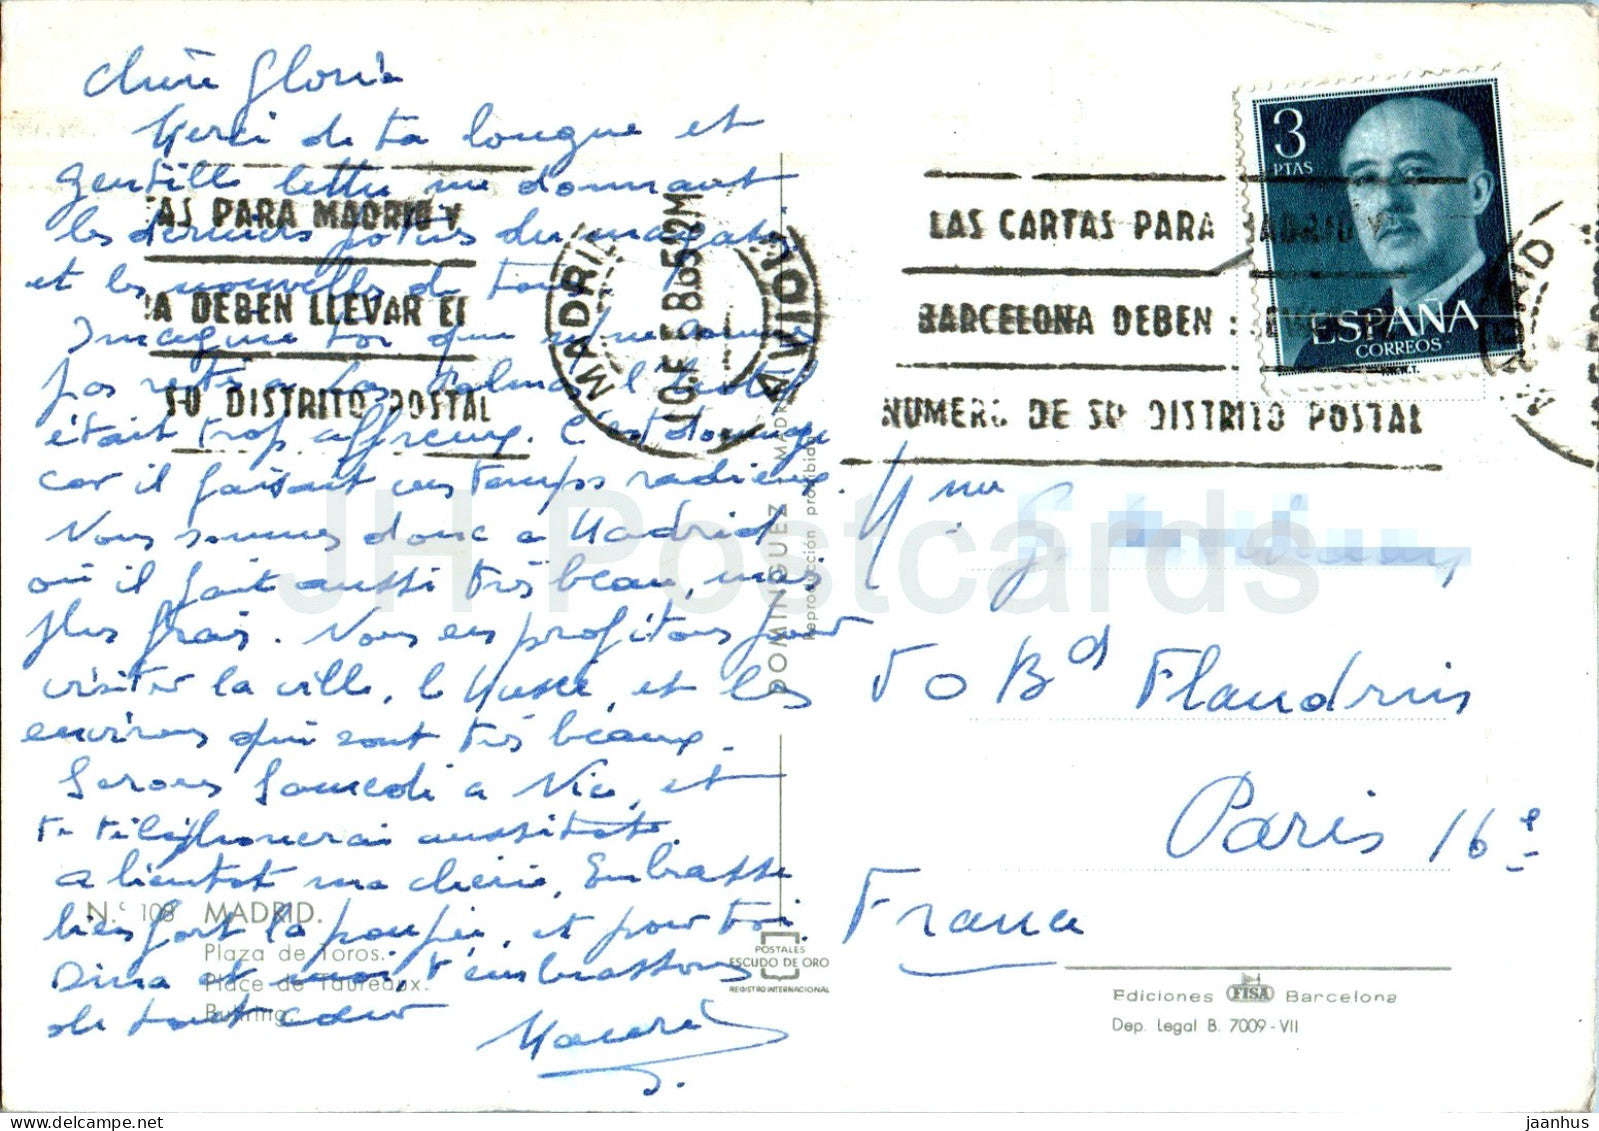 Chère Gloria
Merci de ta longue et
gentille lettre me donnant
les derniers potins du
et les nouvelles de tous.
Imagine toi que nous ne sommes
pas restés à Las Palmas, l'hotel
était trop affreux. C'est dommage
car il faisait un temps radieux.
Nous sommes donc à Madrid
où il fait aussi très beau, mais
plus frais. Nous en profitons pour
visiter la ville, le Musée, et les
environs qui sont très beaux.
Serons Samedi à Nice, et
te téléphonerai aussitôt.
A bientôt ma chérie. Embrasse
bien fort la poupée, et pour toi
Dina et moi t'embrassons
de tout cœur
N.º 108 MADRID.
Plaza de Toros.
Place de Taureaux.
Bullring.
TAS PARA MADRID Y
A DEBEN LLEVAR EL
SU DISTRITO POSTAL
MADRID
LAS CARTAS PARA MADRID Y
BARCELONA DEBEN LLEVAR EL
NUMERO DE SU DISTRITO POSTAL
3
PTAS
ESPAÑA
CORREOS
DOMINGUEZ - MADRID
Reproducción prohibida
POSTALES
ESCUDO DE ORO
REGISTRO INTERNACIONAL
Mme G.
50 Bd Flandrin
Paris 16e
France
Ediciones FISA Barcelona
Dep. Legal B. 7009-VII
JH Postcards
www.delcampe.net
jaanhus